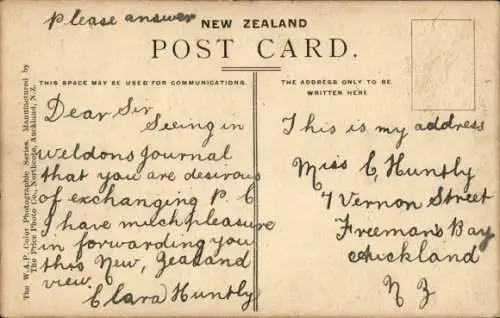 Please answer
NEW ZEALAND
POST CARD.
THIS SPACE MAY BE USED FOR COMMUNICATIONS.
THE ADDRESS ONLY TO BE
WRITTEN HERE
The W.A.P. Color Photographic Series. Manufactured by
The Price Photo Co., Northcote, Auckland, N.Z.
Dear Sir
Seeing in
Weldons Journal
that you are desirous
of exchanging P C
I have much pleasure
in forwarding you
this New, Zealand
view.
Clara Huntly
This is my address
Miss C, Huntly
7 Vernon Street
Freeman's Bay
Auckland
N Z